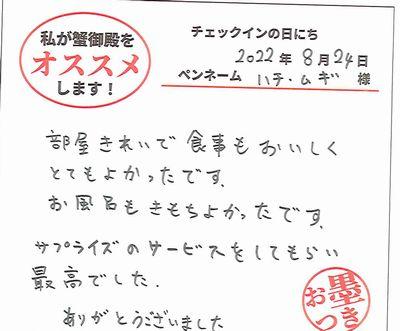 私が蟹御殿を
オススメ
します！
チェックインの日にち
2022年 8月24日
ペンネーム ハチ・ムギ 様
部屋きれいで食事もおいしく
とてもよかったです。
お風呂もきもちよかったです。
サプライズのサービスをしてもらい
最高でした.
ありがとうございました
お墨つき